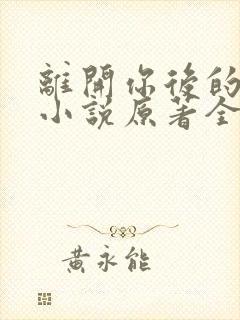 離開你後的
小說原著全
黃永能